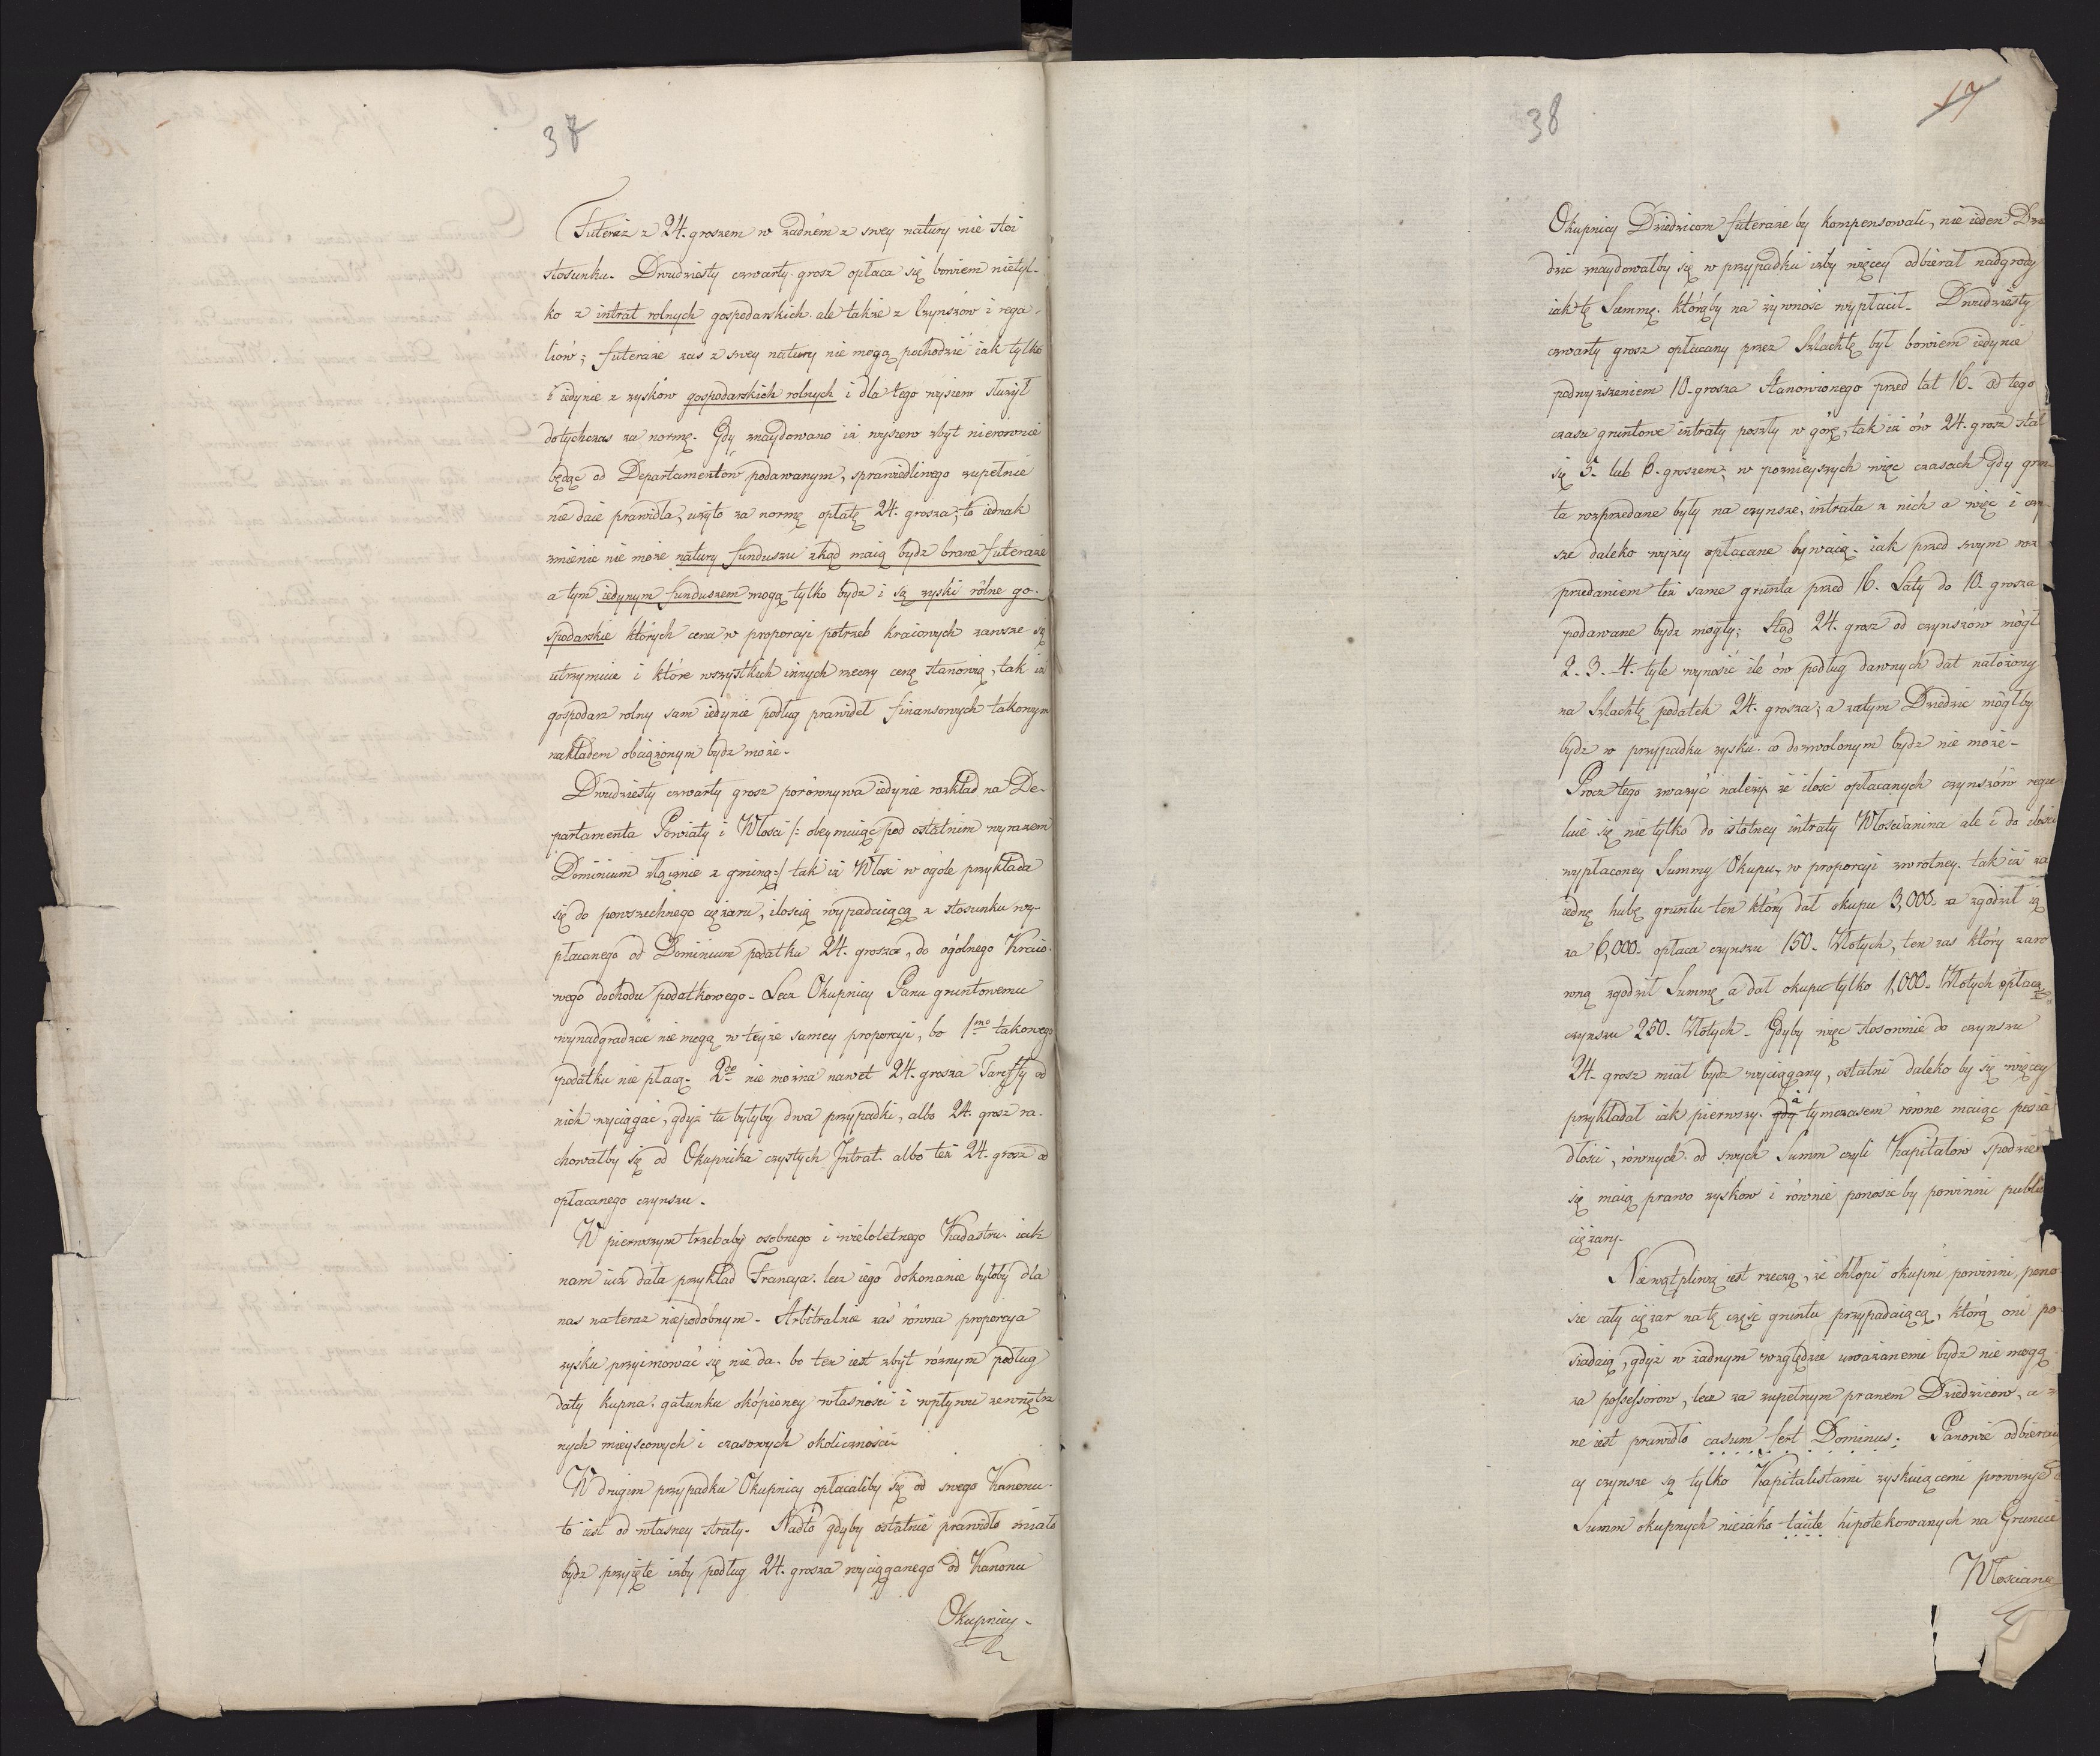 37
Futeraż z 24. groszem w żadném z swey natury nie stoi
stosunku. Dwudziesty czwarty grosz opłaca się bowiem nietyl-
ko z intrat rolnych gospodarskich ale także z Czynszów i rega-
liów; futeraże zas z swey natury nie mogą pochodzić iak tylko
i iedynie z zysków gospodarskich rolnych i dla tego wysiew służył
dotychczas za normę. Gdy znaydowano iż wysiew zbyt nierównie
będąc od Departamentów podawanym, sprawiedliwego zupełnie
nie daie prawidła, użyto za normę opłatę 24. grosza; to iednak
zmienić nie może natury funduszu zkąd maią bydz brane futeraże
a tym iedynym funduszem mogą tylko bydz i są zyski rólne go-
spodarskie których cena w proporcyi potrzeb kraiowych zawsze się
utrzymuie i które wszystkich innych rzeczy cenę stanowią, tak iż
gospodarz rolny sam iedynie podług prawideł finansowych takowym
nakładem obciążonym bydz może.
Dwudziesty czwarty grosz porównywa iedynie rozkład na De-
partamenta Powiaty i Włości /: obeymuiąc pod ostatnim wyrazem
Dominium złącznie z gminą :/ tak iż Włość w ogóle przykłada
się do powszechnego ciężaru, ilością wypadaiącą z stosunku wy-
płacanego od Dominium podatku 24. grosza, do ogólnego Kraio-
wego dochodu podatkowego. Lecz Okupnicy Panu gruntowemu
wynadgradzać nie mogą w teyże samey proporcyi, bo 1mo takowego
podatku nie płacą. 2do nie można nawet 24. grosza Taryffy od
nich wyciągać, gdyż tu byłyby dwa przypadki, albo 24. grosz ra-
chowałby się od Okupnika czystych Intrat albo też 24. grosz od
opłacanego czynszu.
W pierwszym trzebaby osobnego i wieloletnego Kadastru iak
nam iuż dała przykład Francya. lecz iego dokonanie byłoby dla
nas na teraz niepodobnym. Arbitralnie zaś równa proporcya
zysku przyimować się nie da. bo ten iest zbyt różnym podług
daty kupna. gatunku okópioney własności i wpływu zewnętrz
nych mieyscowych i czasowych okoliczności
W drugim przypadku Okupnicy opłacaliby się od swego Kanonu
to iest od własney straty. Nadto gdyby ostatnie prawidło miało
bydz przyięte iżby podług 24. grosza wyciąganego od Kanonu
Okupnicy
38
17
Okupnicy Dziedzicom futeraże by kompensowali, nie ieden Dzie
dzic znaydowałby się w przypadku iżby więcey odbierał nadgrody
iak tę Summę. którąby na żywność wypłacił. Dwudziesty
czwarty grosz opłacany przez Szlachtę był bowiem iedynie
podwyższeniem 10. grosza Stanowionego przed lat 16. Od tego
czasu gruntowe intraty poszły w górę, tak iż ów 24. grosz stał
się 5. lub 6. groszem; w poznieyszych więc czasach gdy grun-
ta rozprzedane były na czynsze, intrata z nich a więc i czyn-
sze daleko wyzey opłacane bywaią. iak przed swym roz-
przedaniem też same grunta przed 16. Laty do 10. grosza
podawane bydz mogły; Ztąd 24. grosz od czynszów mógł
2. 3. 4. tyle wynosić ile ów podług dawnych dat nałożony
na Szlachtę podatek 24. grosza; a zatym Dziedzic mógłby
bydz w przypadku zysku. co dozwolonym bydz nie może.
Procz tego zważyć należy że ilość opłacanych czynszów regu-
luie się nie tylko do istotney intraty Włościanina ale i do ilości
wypłaconey Summy Okupu, w proporcyi zwrotney. tak iż za
iednę hubę gruntu ten który dał okupu 3,000. a zgodził ią
za 6,000. opłaca czynszu 150. Złotych, ten zas który zaró
wną zgodził Summę a dał okupu tylko 1,000. Złotych opłaca
czynszu 250. Złotych. Gdyby więc stosownie do czynszu
24. grosz miał bydz wyciągany, ostatni daleko by się więcey
przykładał iak pierwszy. gdy a tymczasem równe maiąc posia
dłości, równych od swych Summ czyli Kapitałów spodziew
się maią prawo zysków i równie ponosić by powinni public
ciężary.
Niewątpliwą iest rzeczą, że chłopi okupni powinni pono-
sic cały ciężar na tę część gruntu przypadaiącą, którą oni po-
siadaią, gdyż w żadnym względzie uważanemi bydz nie mogą
za possessorow, lecz za zupełnym prawem Dziedziców, a z
ne iest prawidło casum fert Dominus. Panowie odbieraią
cy czynsze są tylko Kapitalistami zyskuiącemi prowizye
Summ okupnych nieiako tacite hipotekowanych na Gruncie
Włościans